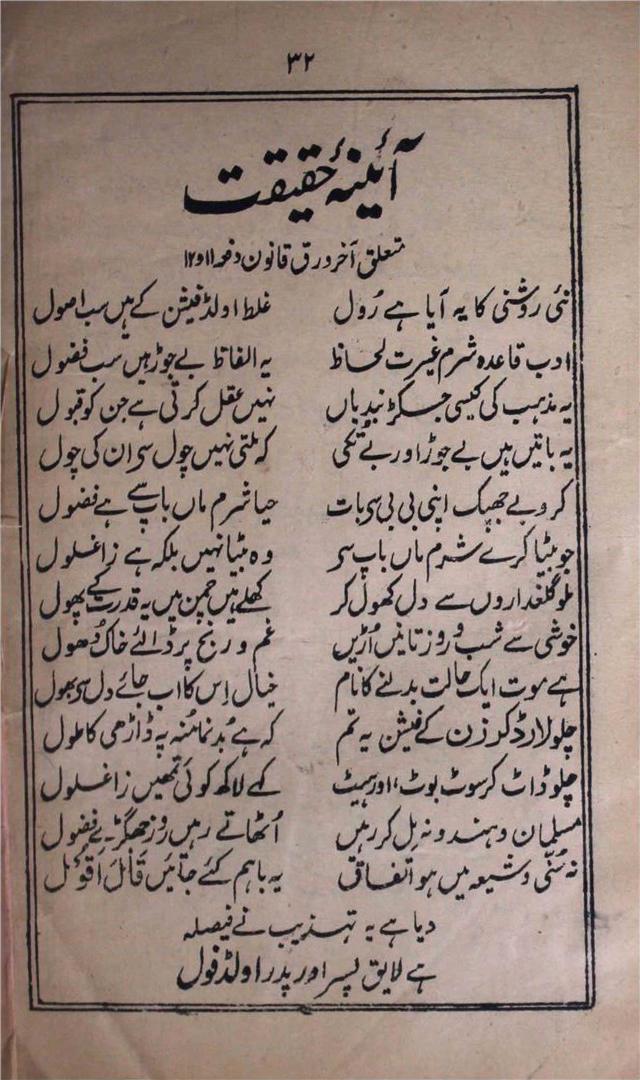 ۳۲
آئینۂ حقیقت
متعلق آخر ورق قانون دفعہ ۱۱ و ۱۲
نئی روشنی کا یہ آیا ہے رُول غلط اولڈ فیشن کے ہیں سب اصول
ادب قاعدہ شرم غیرت لحاظ یہ الفاظ بے جوڑ ہیں سب فضول
یہ مذہب کی کیسی جکڑ بندیاں نہیں عقل کرتی ہے جن کو قبول
یہ باتیں ہیں بے جوڑ اور بے تُکی کہ ملتی نہیں چول سی ان کی چول
کرو بے جھپک اپنی بی بی سی بات حیا شرم ماں باپ سے ہے فضول
جو بیٹا کرے شرم ماں باپ سی وہ بیٹا نہیں بلکہ ہے زاغلول
ملو گلعذاروں سے دل کھول کر کھلے ہیں چمن میں یہ قدرت کے پھول
خوشی سے شب و روز تانیں اُڑیں غم و رنج پر ڈالئے خاک دُھول
ہے موت ایک حالت بدلنے کا نام خیال اِس کا اب جائے دل سی بھول
چلو لارڈ کرزن کے فیشن پہ تم کہ ہے بُدنما مُنہ پہ ڈاڑھی کا طول
چلو ڈاٹ کر سوٹ بوٹ، اور ہیٹ کہے لاکھ کوئی تمھیں زاغلول
مسلمان و ہندو نہ مِل کر رہیں اُٹھاتے رہیں روز جھگڑے فضول
نہ سُنّی و شیعہ میں ہو اتفاق یہ باہم کئے جائیں قَالَ اَقُوْل
دیا ہے یہ تہذیب نے فیصلہ
ہے لایق پسر اور پدر اولڈ فول